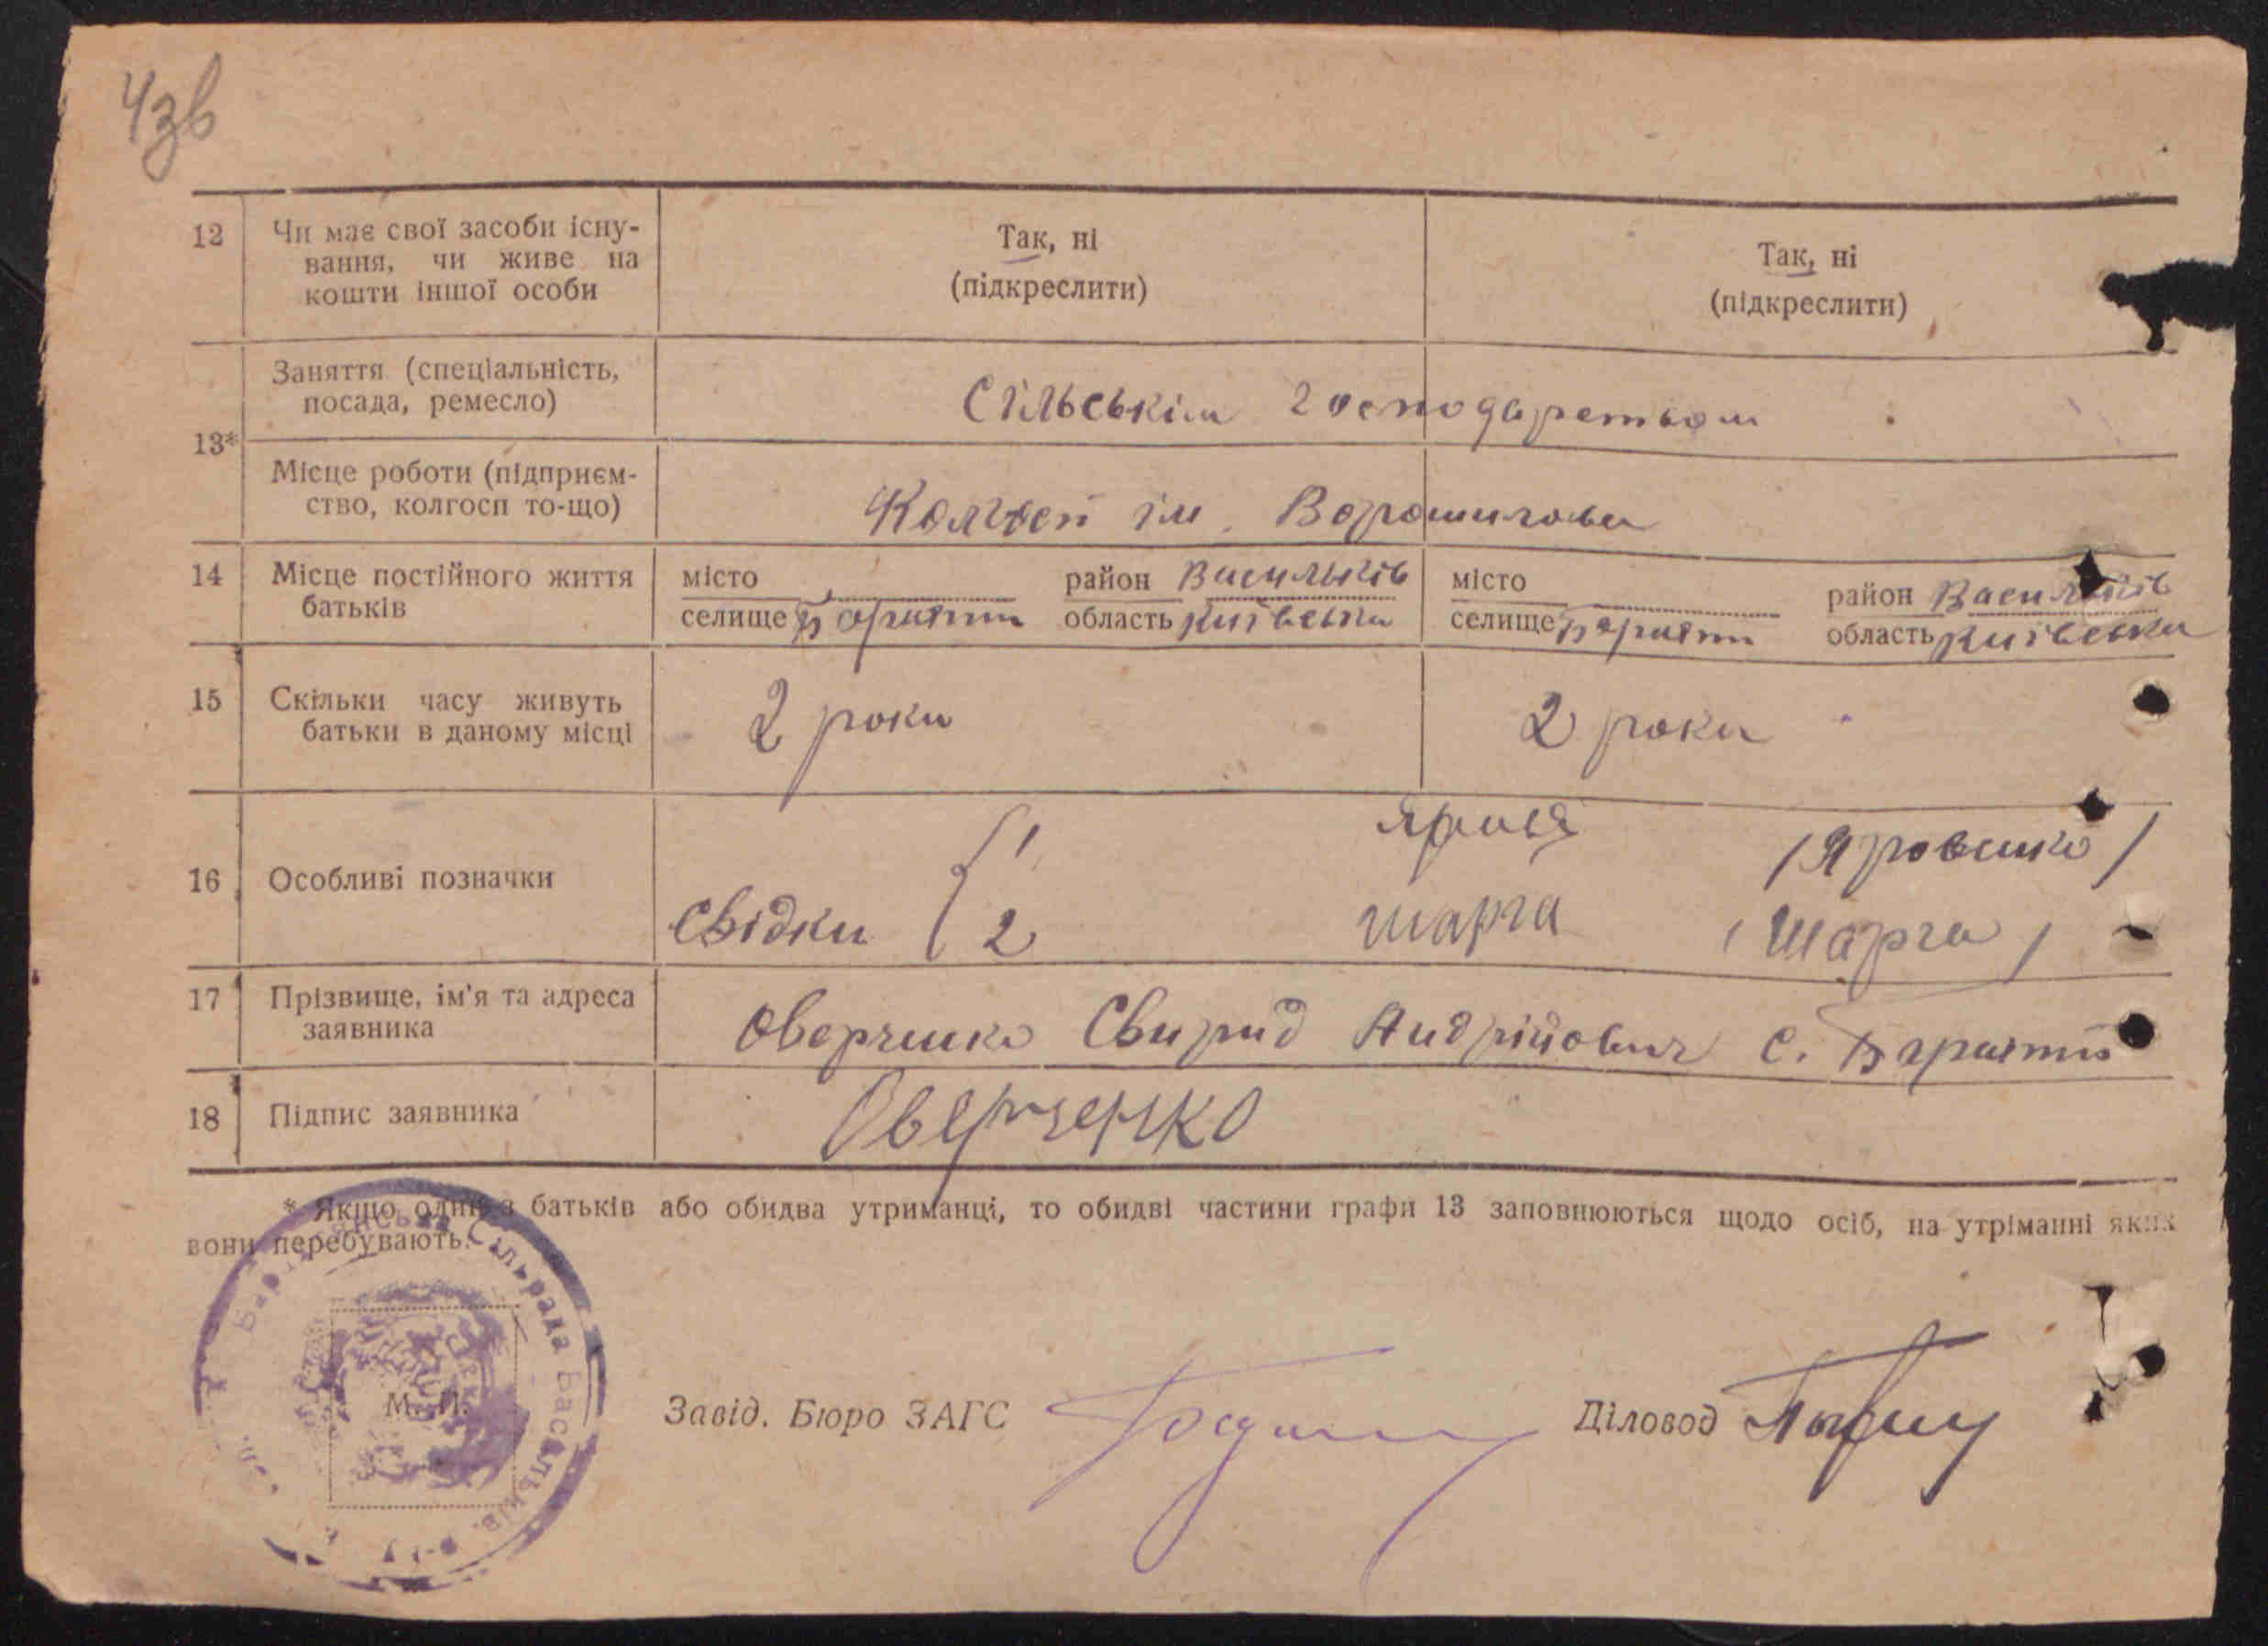 43в
12 Чи має свої засоби існу-
вання, чи живе на
кошти іншої особи
Так, ні
(підкреслити)
Так, ні
(підкреслити)
13*
Заняття (спеціальність,
посада, ремесло)
Сільськім господарством
Місце роботи (підприєм-
ство, колгосп то-що)
Колгосп ім. Ворошилова
14 Місце постійного життя
батьків
місто район Васильків
селище Барахти область Київська
місто район Васильків
селище Барахти область Київська
15 Скільки часу живуть
батьки в даному місці
2 роки
2 роки
16 Особливі позначки
Свідки
1 /Яровенко/
2 шарга (Шарга)
17 Прізвище, ім'я та адреса
заявника
Оверченко Свирид Андрійович с. Барахти
18 Підпис заявника
Оверченко
* Якщо один з батьків або обидва утриманці, то обидві частини графи 13 заповнюються щодо осіб, на утріманні яких
вони перебувають.
Сільрада Васильків.
М. П.
Завід. Бюро ЗАГС
Діловод